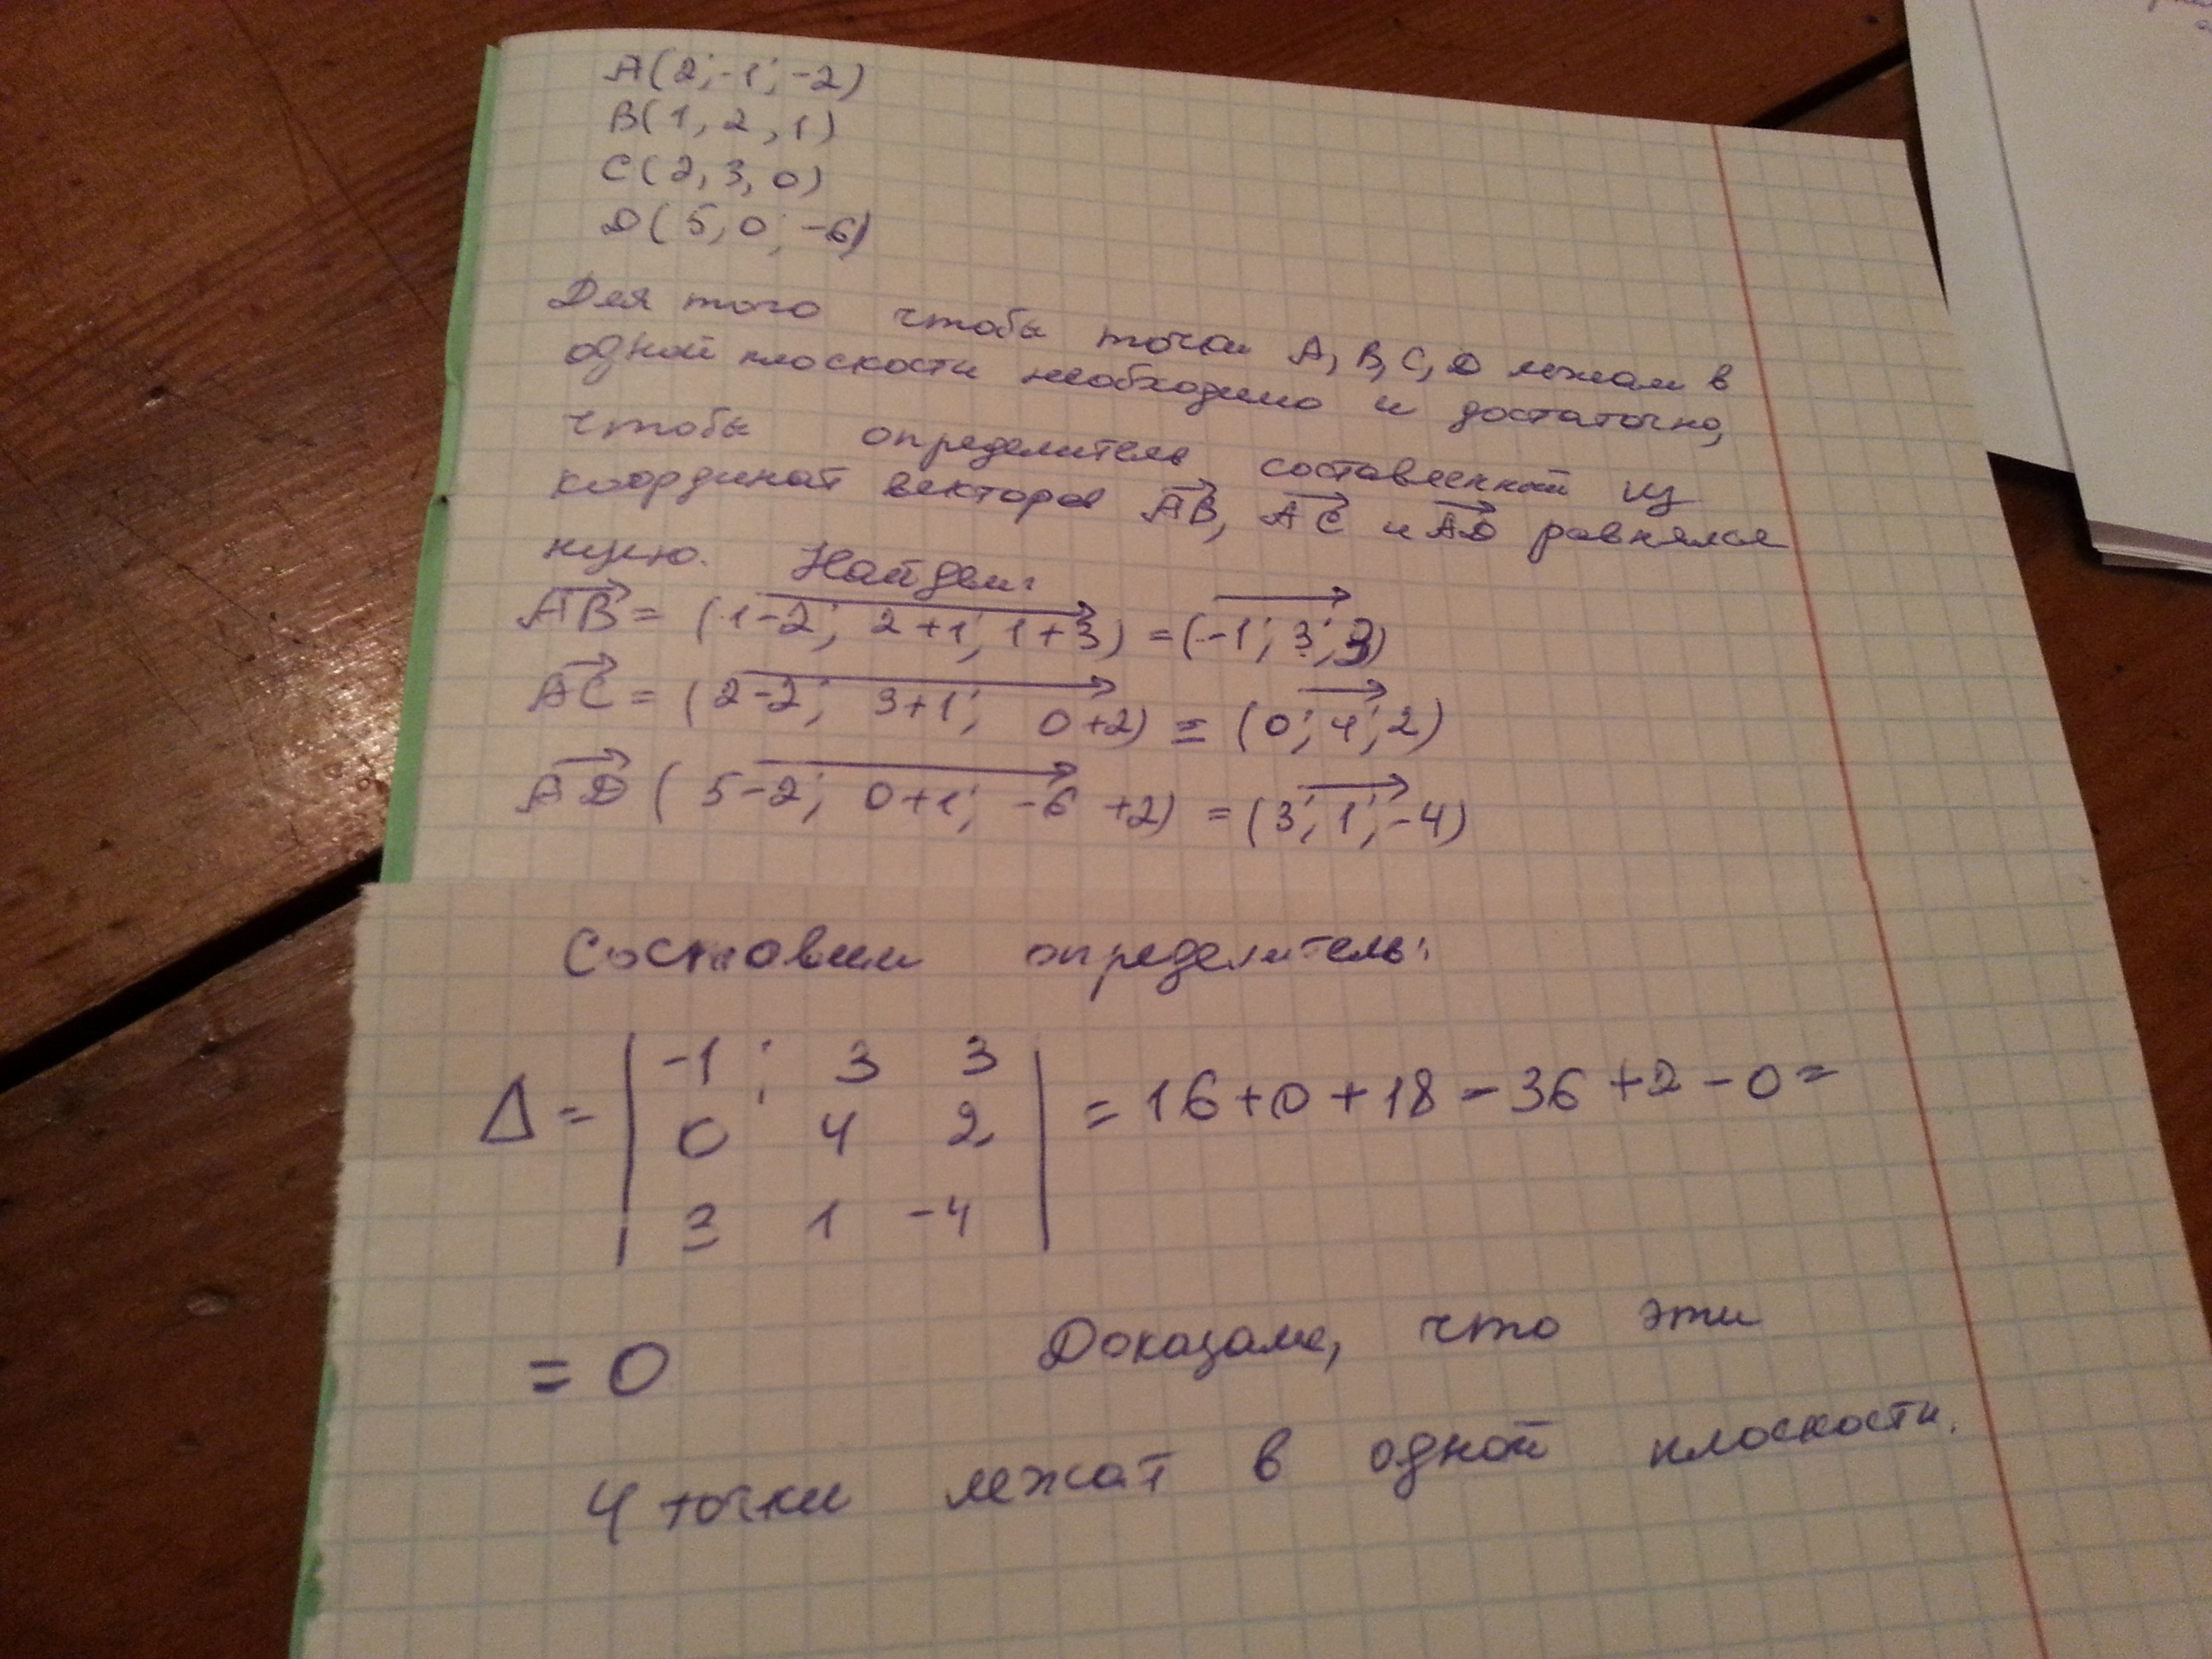 A(2; -1; -2)
B(1, 2, 1)
C(2, 3, 0)
D(5, 0; -6)
Для того чтобы точки A, B, C, D лежали в
одной плоскости необходимо и достаточно,
чтобы определитель составленный из
координат векторов AB, AC и AD равнялся
нулю. Найдем:
AB = (1-2; 2+1; 1+3) = (-1; 3; 3)
AC = (2-2; 3+1; 0+2) = (0; 4; 2)
AD (5-2; 0+1; -6+2) = (3; 1; -4)
Составим определитель:
Δ = | -1 ; 3 3 | = 16+0+18-36+2-0=
0 4 2
3 1 -4
= 0 Доказали, что эти
4 точки лежат в одной плоскости.